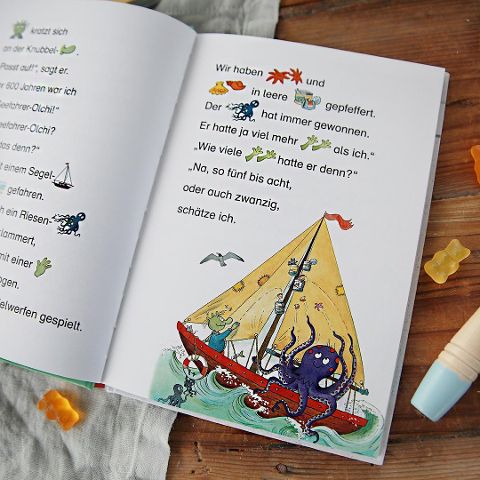 kratzt sich
an der Knubbel-
Passt auf!", sagt er.
or 500 Jahren war ich
Seefahrer-Olchi!"
eefahrer-Olchi?
as denn?"
it einem Segel-
gefahren.
ch ein Riesen-
klammert,
mit einer
ogen.
elwerfen gespielt.
Wir haben und
in leere gepfeffert.
Der hat immer gewonnen.
Er hatte ja viel mehr als ich."
„Wie viele hatte er denn?"
„Na, so fünf bis acht,
oder auch zwanzig,
schätze ich.